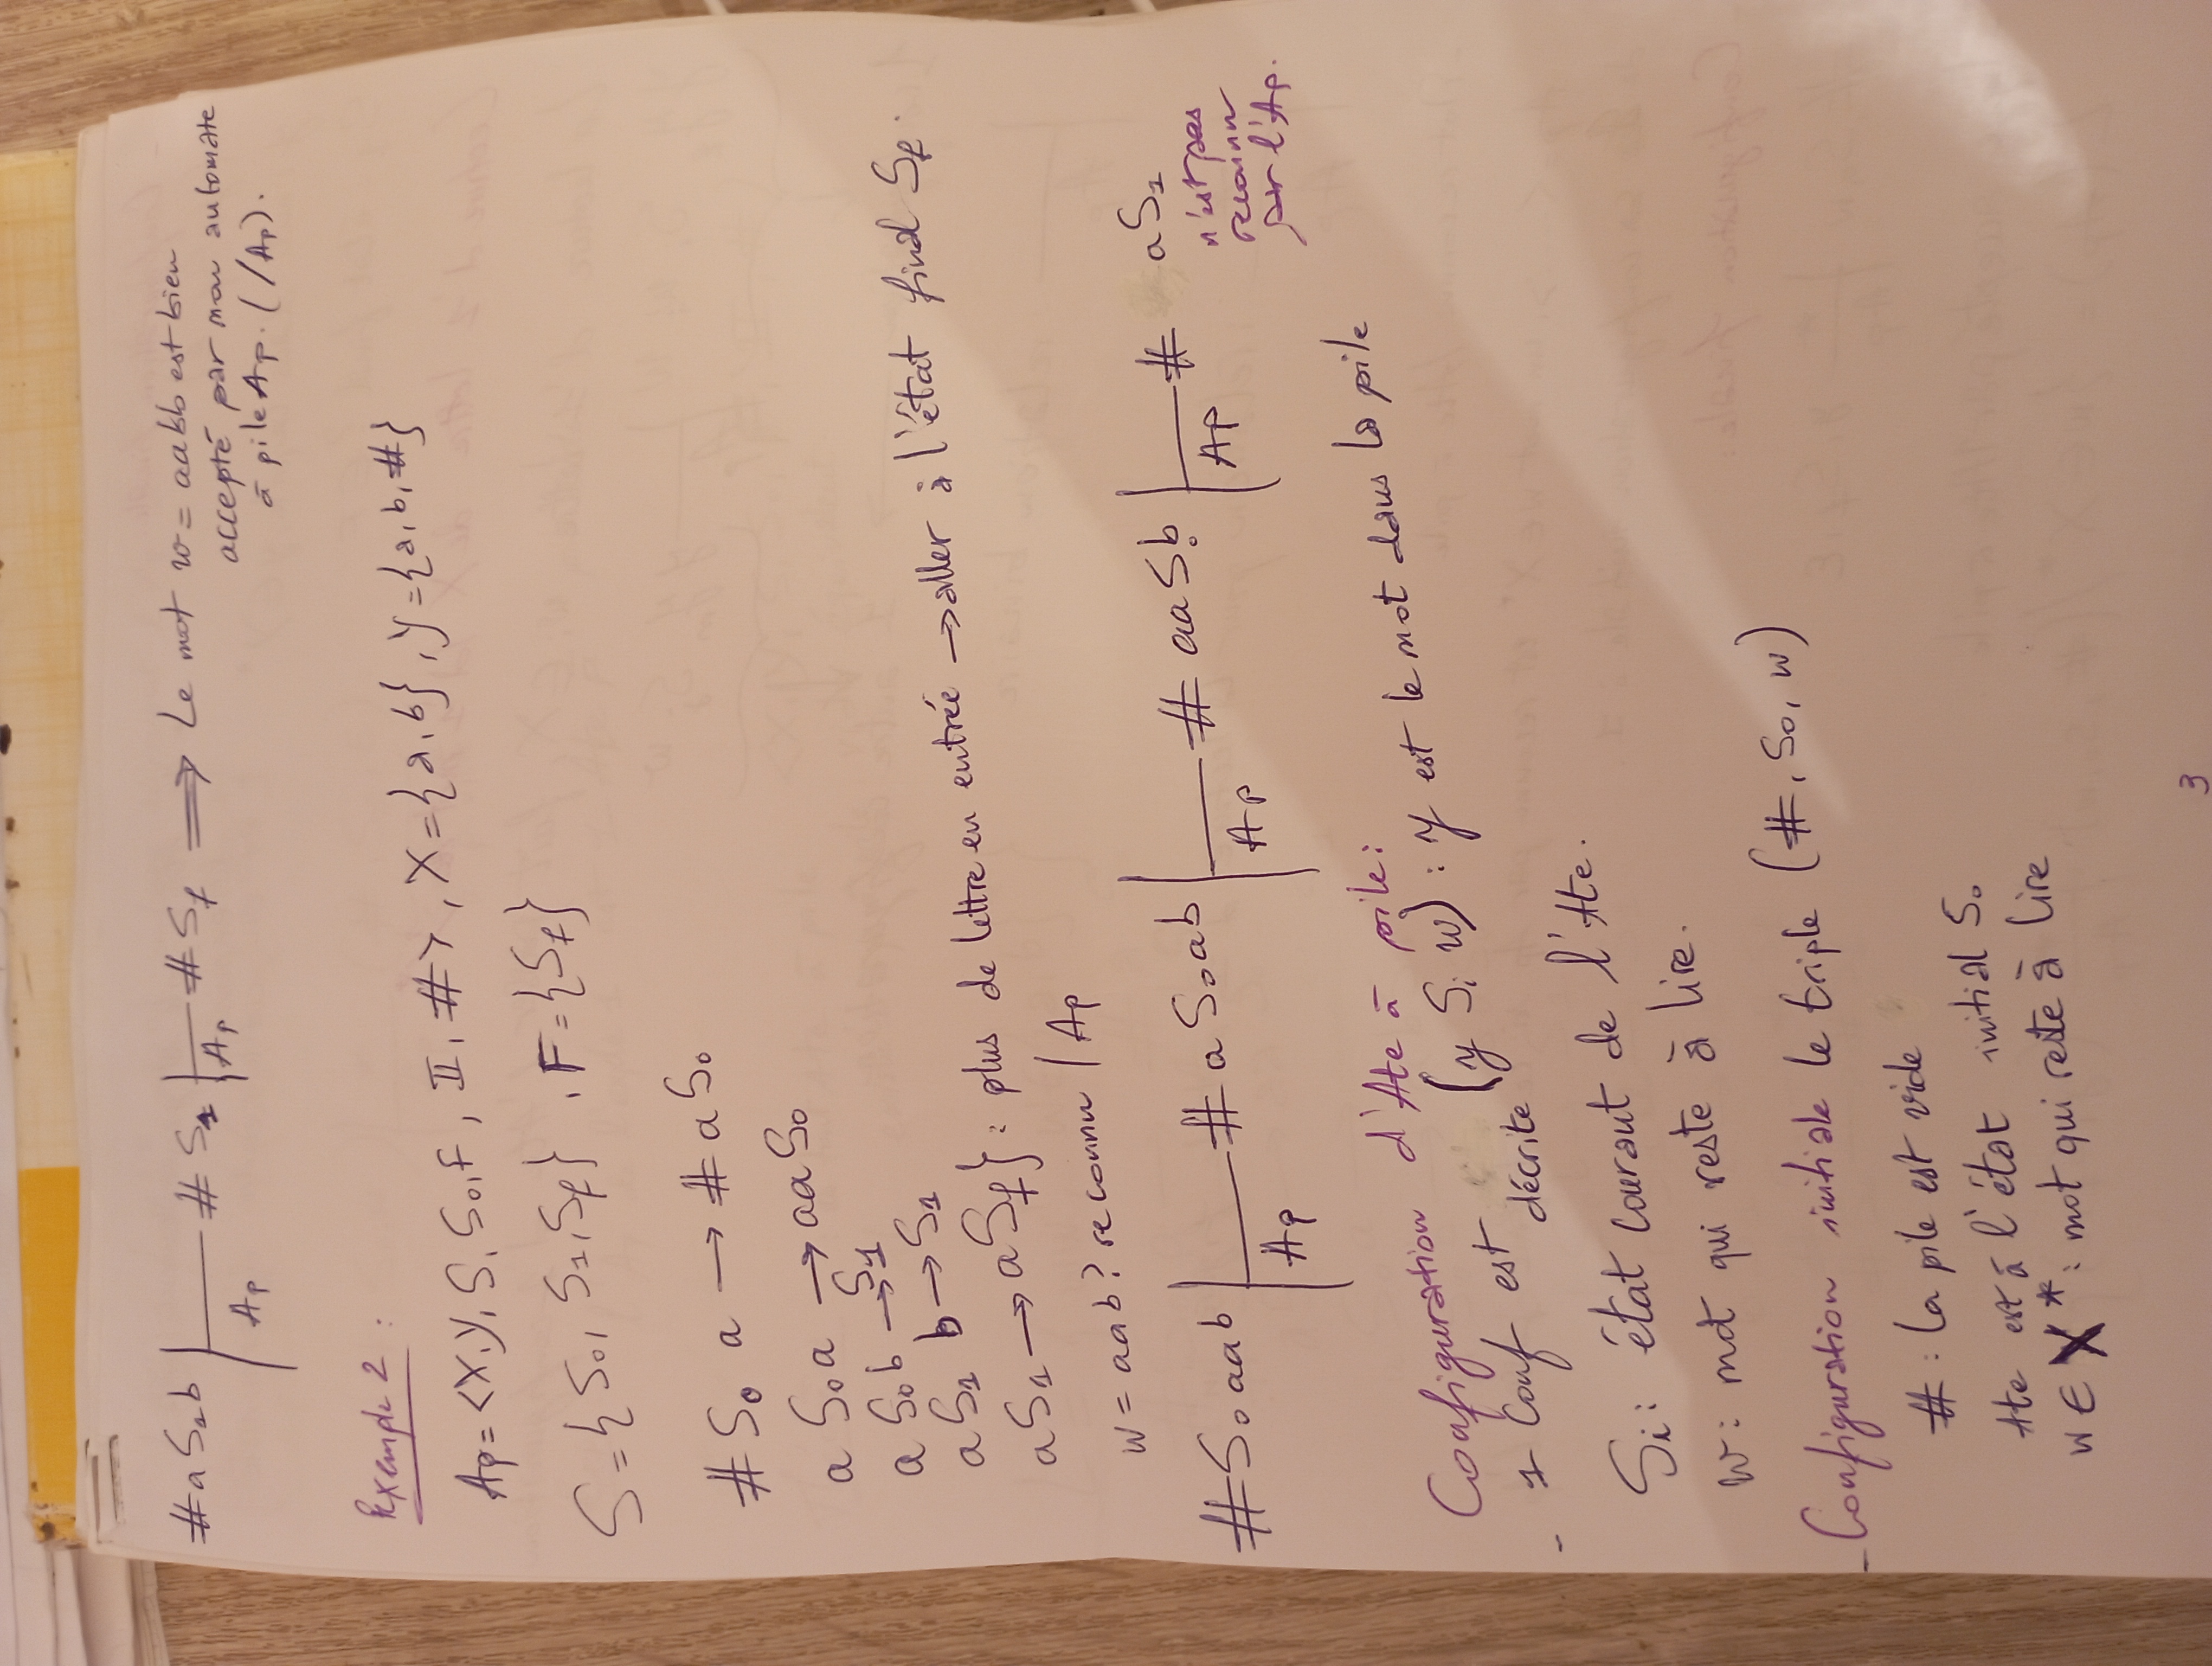 #aS₁b |—Ap #S₁ |—Ap #Sf ⟹ Le mot w = aabb est bien
accepté par mon automate
à pile Ap. (/Ap).
Exemple 2 :
Ap = <X, Y, S, S0, F, II, #>, X = {a, b}, Y = {a, b, #}
S = {S0, S1, Sf}, F = {Sf}
# S0 a → # a S0
a S0 a → aa S0
a S0 b → S1
a S1 b → S1
a S1 → a Sf} : plus de lettre en entrée → aller à l'état final Sf.
w = aab ? reconnu / Ap
# S0 aab |—Ap # a S0 ab |—Ap # aa S0 b |—Ap # a S1
n'est pas
reconnu
par l'Ap.
Configuration d'Ate à pile :
- 1 Conf est (y Si w) : y est le mot dans la pile
décrite
Si : état courant de l'Ate.
w : mot qui reste à lire.
- Configuration initiale le triple (#, S0, w)
# : la pile est vide
Ate est à l'état initial S0
w ∈ X* : mot qui reste à lire
3